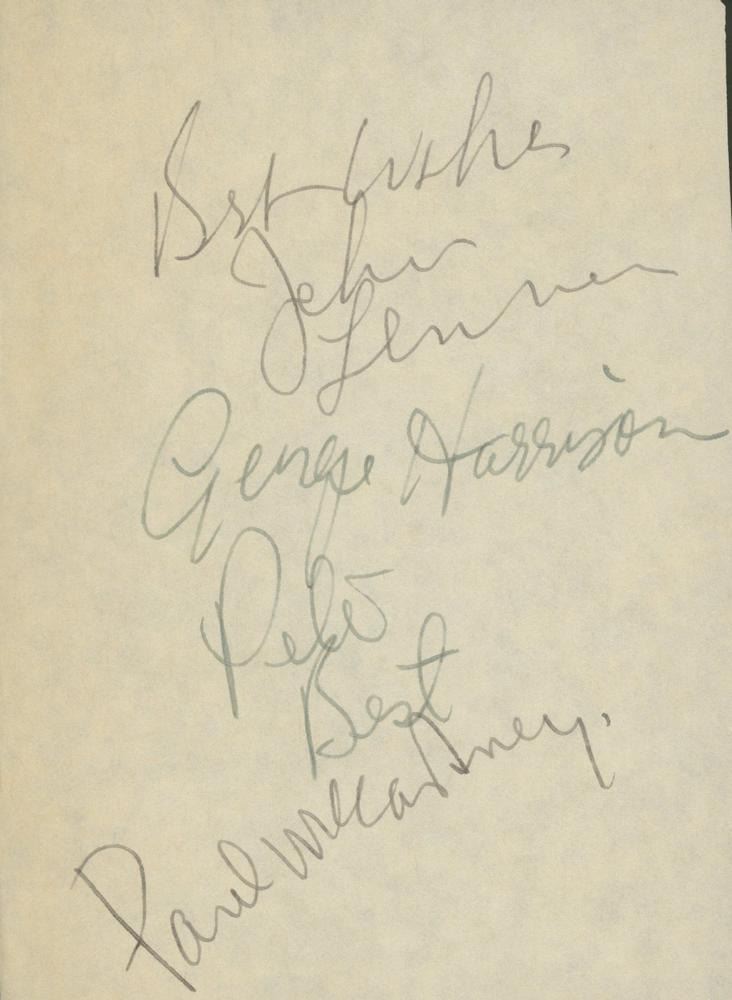 Best wishes
John
Lennon
George Harrison
Pete
Best
Paul McCartney.